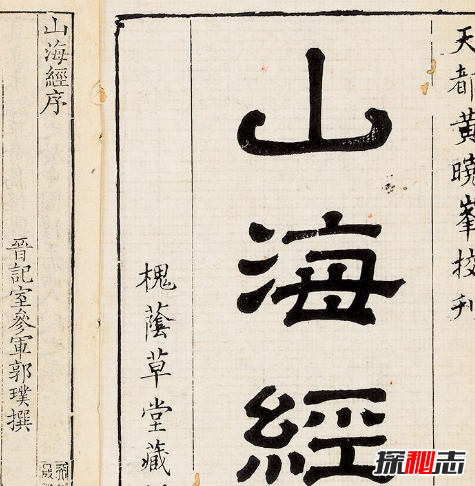 天都黃曉峯挍刋
山海經
槐蔭草堂藏
山海經序
晉記室參軍郭璞撰
探秘志